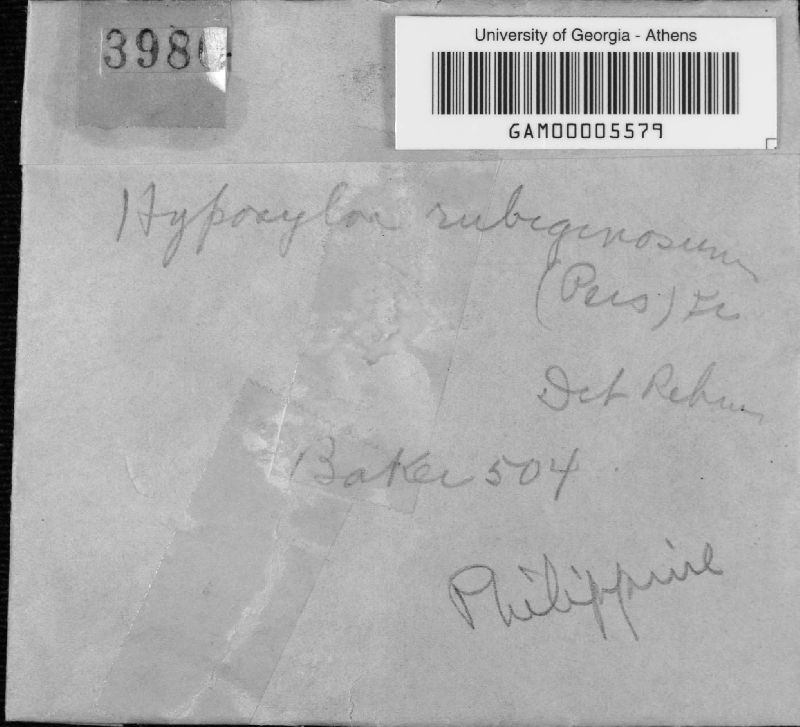 398
University of Georgia - Athens
GAM00005579
Hypoxylon rubiginosum
(Pers) Fr
Det Rehm
Baker 504
Philippine